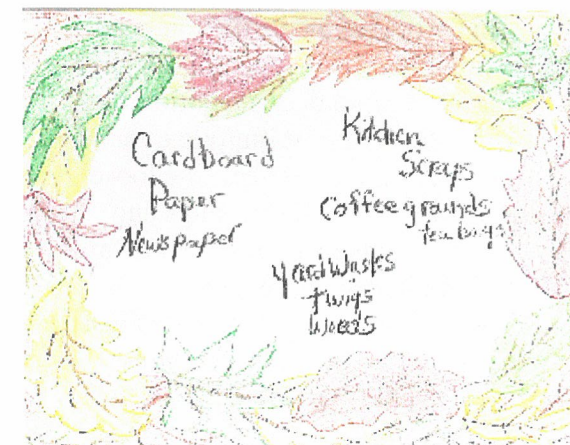 Cardboard
Paper
Newspaper
Kitchen
Scraps
Coffee grounds
tea bags
Yard Wastes
twigs
Weeds